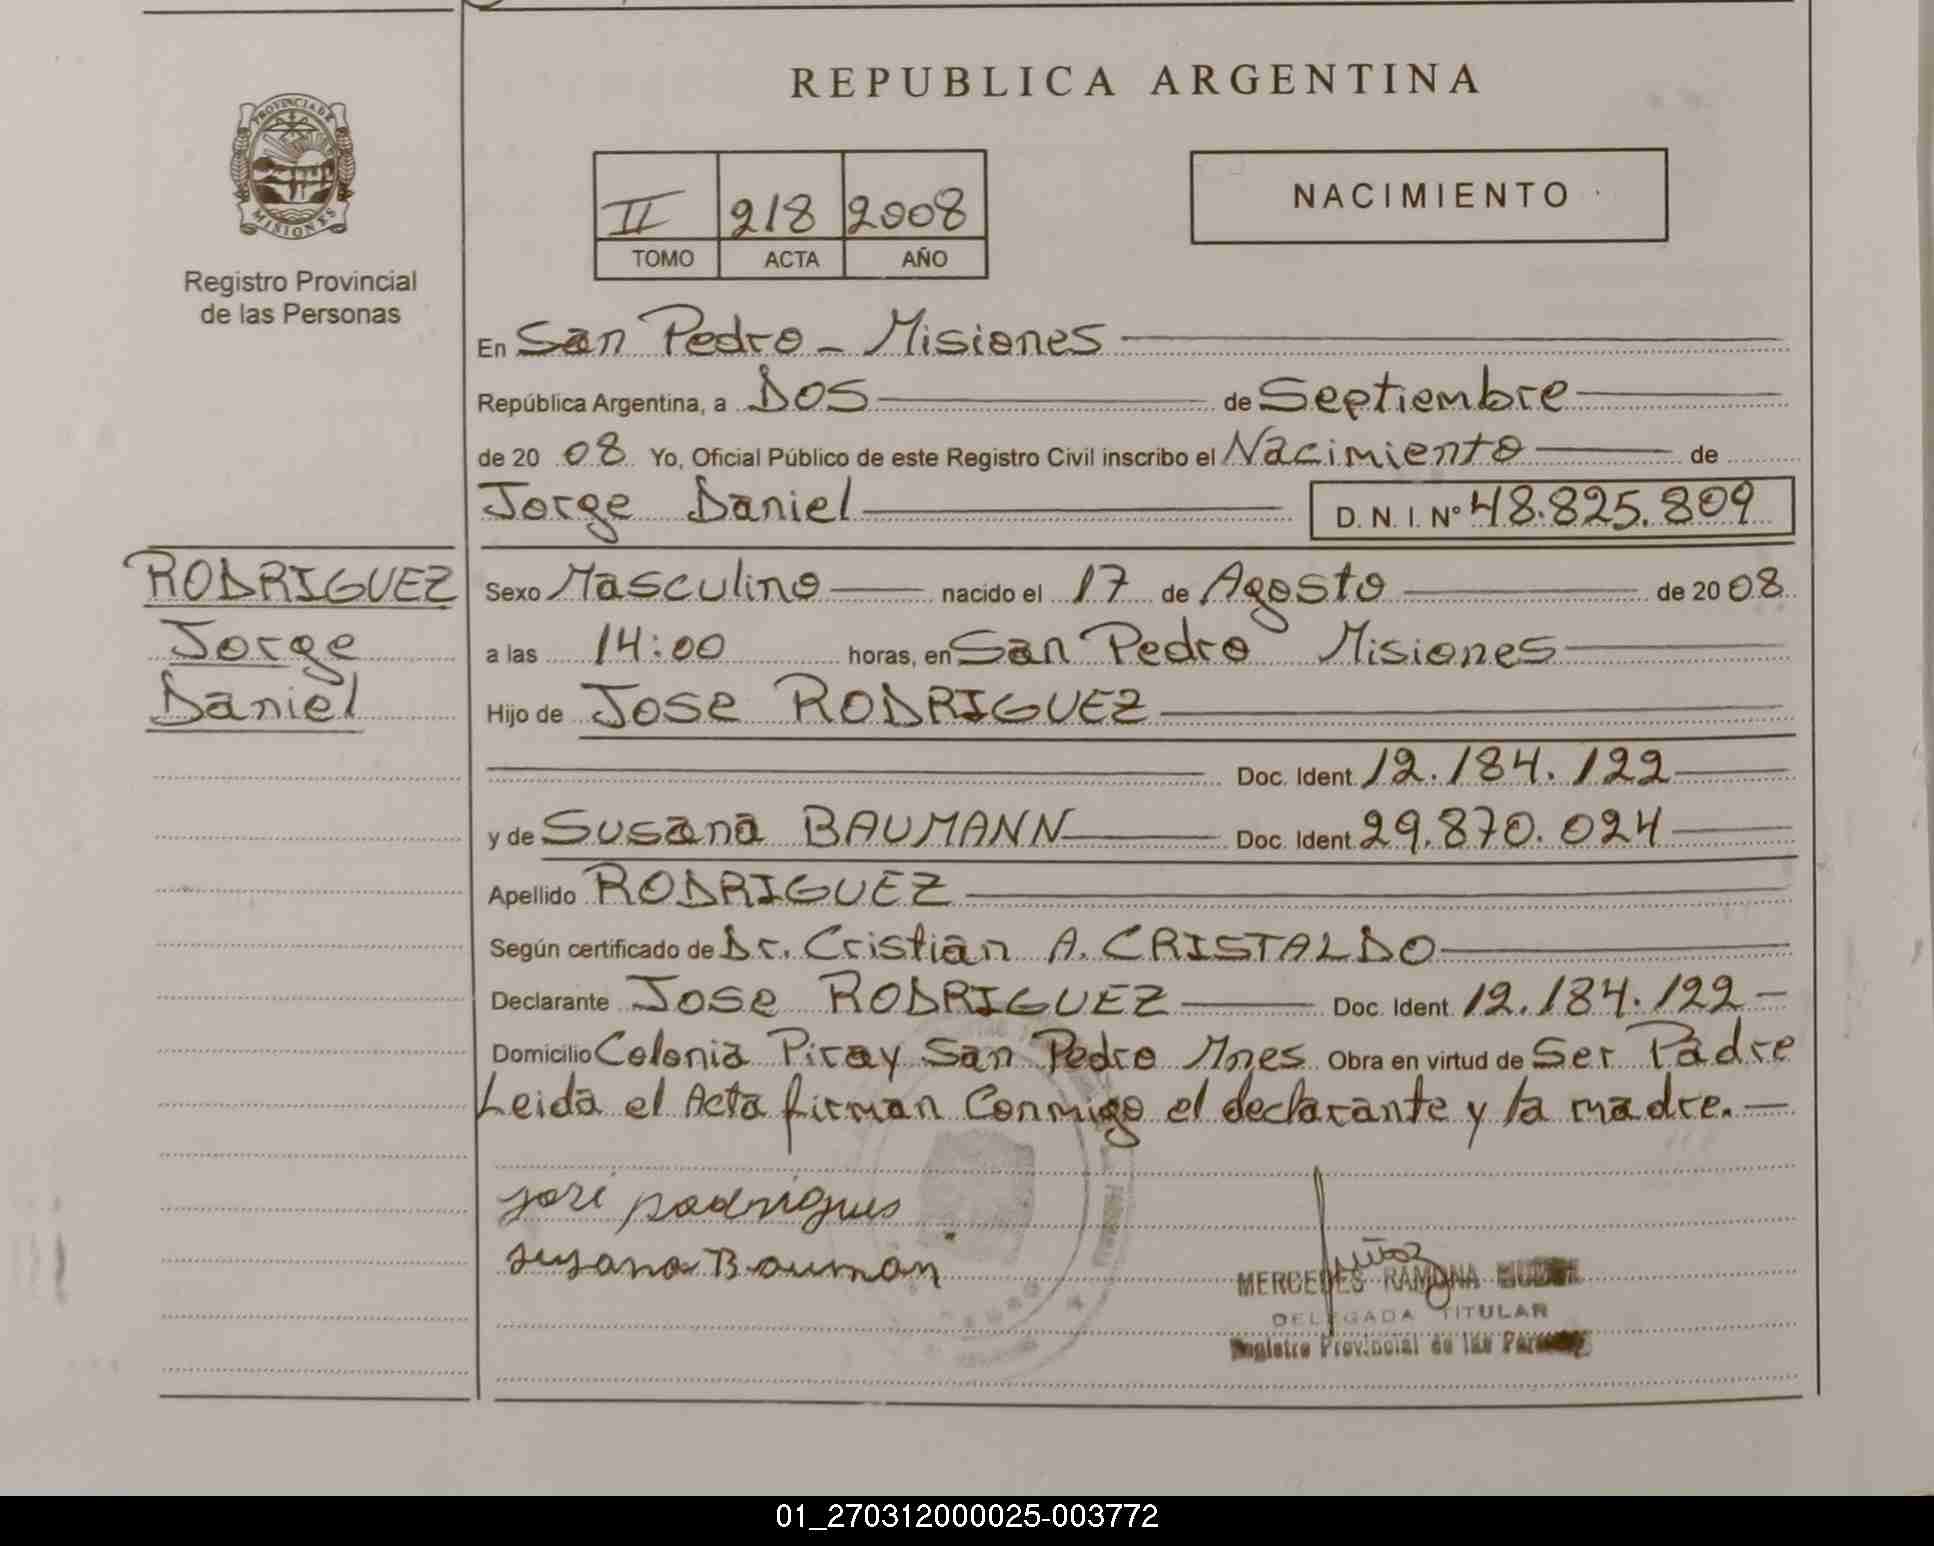 REPUBLICA ARGENTINA
PROVINCIA DE
MISIONES
Registro Provincial
de las Personas
II 218 2008
TOMO ACTA AÑO
NACIMIENTO
En San Pedro - Misiones
República Argentina, a Dos de Septiembre
de 20 08 Yo, Oficial Público de este Registro Civil inscribo el Nacimiento de
Jorge Daniel D. N. I. Nº 48.825.809
RODRIGUEZ
Jorge
Daniel
Sexo Masculino nacido el 17 de Agosto de 20 08
a las 14:00 horas, en San Pedro Misiones
Hijo de Jose RODRIGUEZ
Doc. Ident. 12.184.122
y de Susana BAUMANN Doc. Ident. 29.870.024
Apellido RODRIGUEZ
Según certificado de Dr. Cristian A. CRISTALDO
Declarante Jose RODRIGUEZ Doc. Ident. 12.184.122
Domicilio Colonia Piray San Pedro Mnes. Obra en virtud de Ser Padre
Leida el Acta firman Conmigo el declarante y la madre.
josé rodrigues
susana Bauman
Muñoz
MERCEDES RAMONA
DELEGADA TITULAR
Registro Provincial de las Personas
01_270312000025-003772